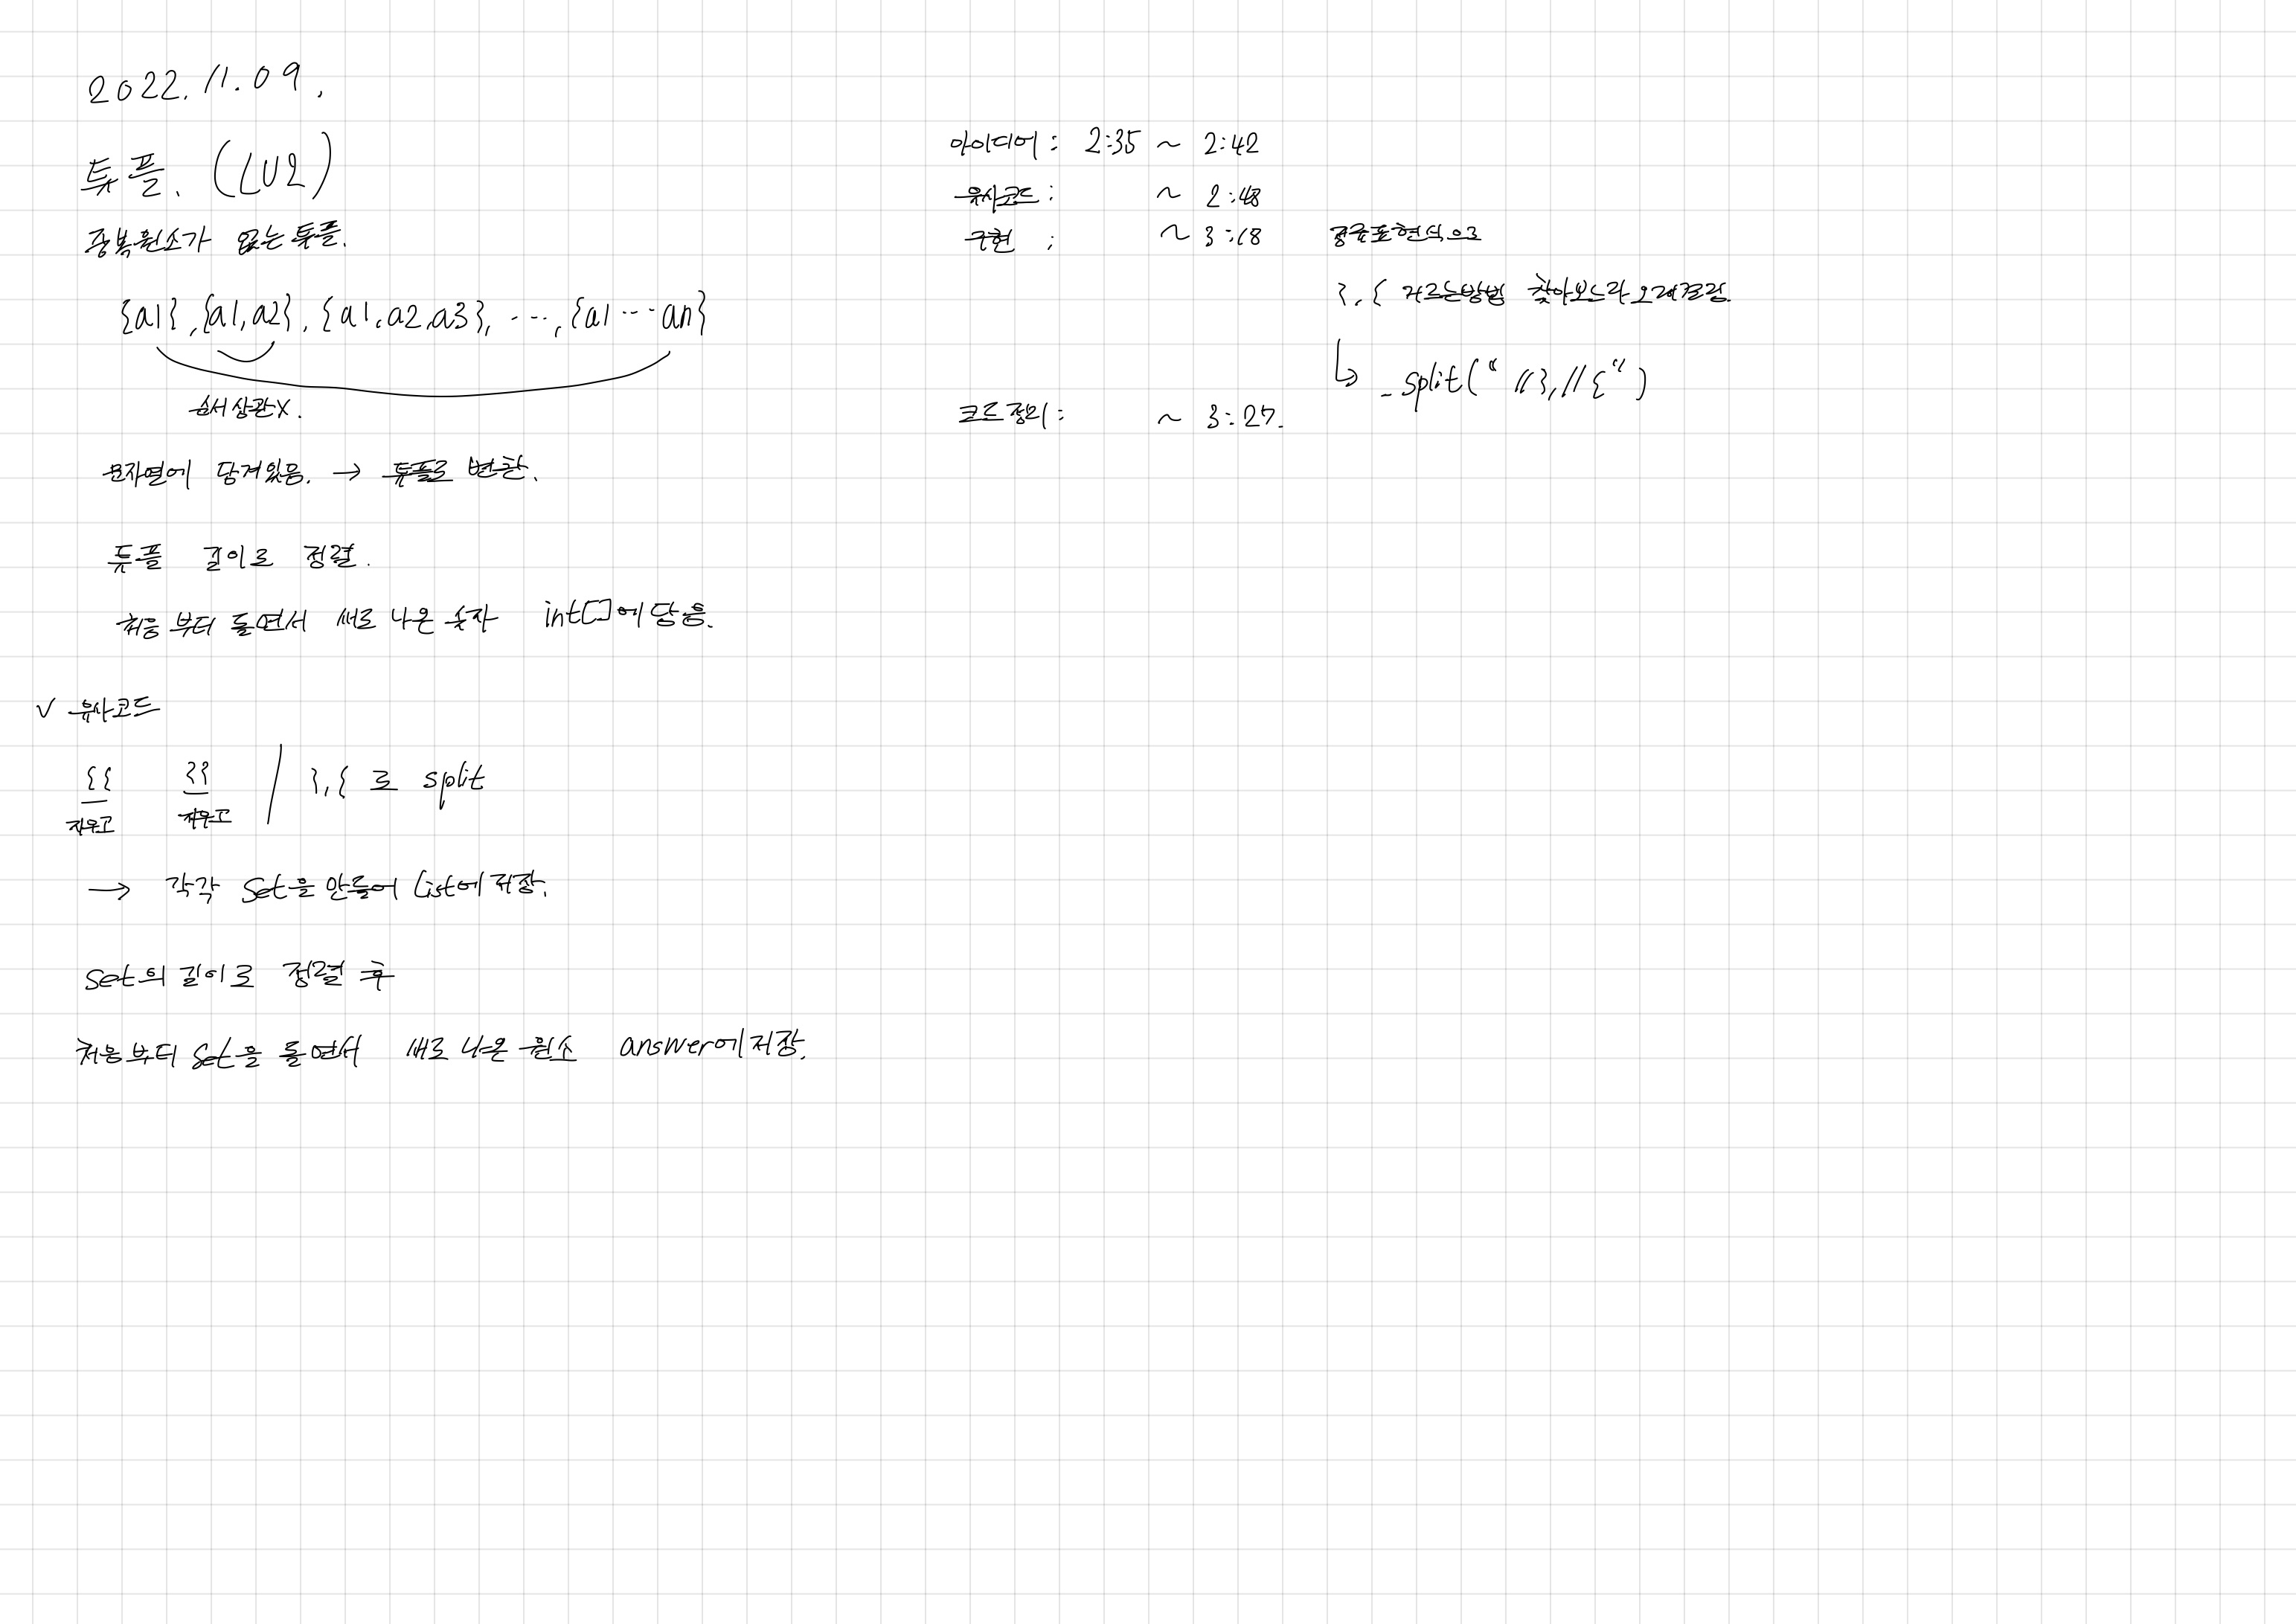 2022.11.09.
튜플. (LV2)
중복원소가 없는 튜플.
{a1},{a1,a2},{a1,a2,a3}, ..., {a1 ... an}
순서 상관X.
문자열에 담겨있음. → 튜플로 변환.
튜플 길이로 정렬.
처음부터 돌면서 새로 나온 숫자 int[]에 담음.
√ 유사코드
{{ }} / },{ 로 split
지우고 지우고
→ 각각 Set을 만들어 List에 저장.
set의 길이로 정렬 후
처음부터 set을 돌면서 새로 나온 원소 answer에 저장.
아이디어 : 2:35 ~ 2:42
유사코드 : ~ 2:48
구현 : ~ 3:18 정규표현식으로
},{ 거르는방법 찾아보느라 오래걸림.
↳ .split("//},//{")
코드정리 : ~ 3:27.